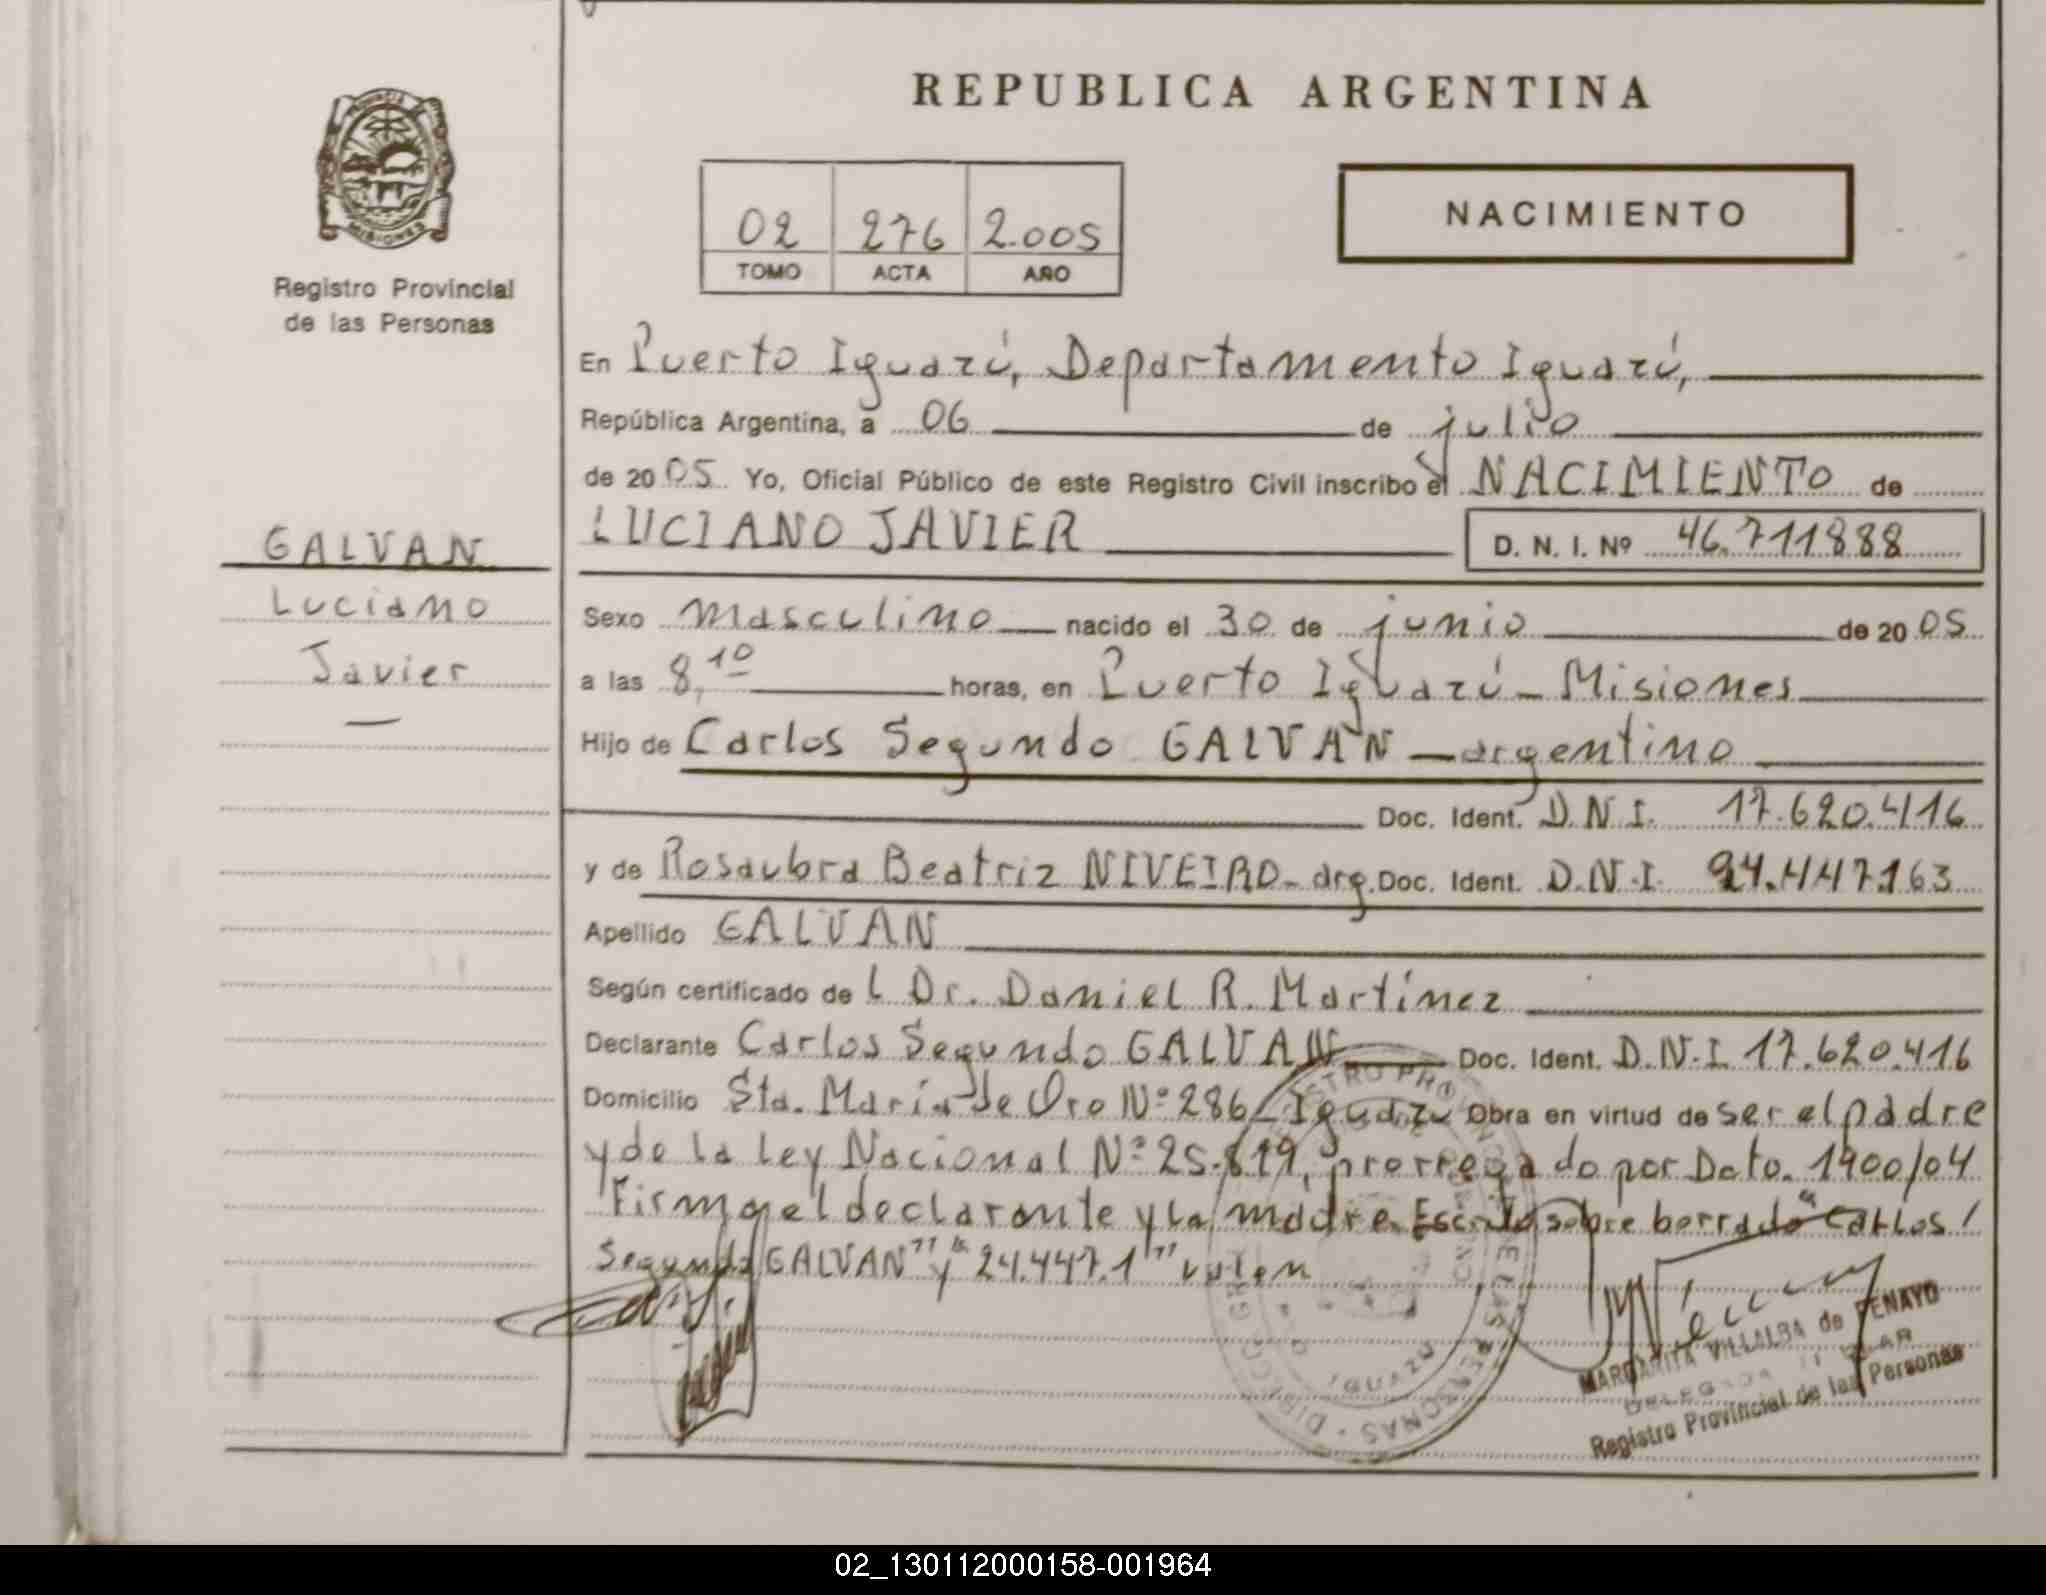 REPUBLICA ARGENTINA
PROVINCIA DE
MISIONES
Registro Provincial
de las Personas
02 276 2.005
TOMO ACTA AÑO
NACIMIENTO
En Puerto Iguazú, Departamento Iguazú,
República Argentina, a 06 de julio
de 2005 Yo, Oficial Público de este Registro Civil inscribo el NACIMIENTO de
LUCIANO JAVIER D. N. I. Nº 46.711888
GALVAN
Luciano
Javier
Sexo masculino nacido el 30 de junio de 2005
a las 8,10 horas, en Puerto Iguazú - Misiones
Hijo de Carlos Segundo GALVAN - argentino
Doc. Ident. D.N.I. 17.620.416
y de Rosaubra Beatriz NIVEIRO - arg. Doc. Ident. D.N.I. 24.447.163
Apellido GALVAN
Según certificado de l Dr. Daniel R. Martínez
Declarante Carlos Segundo GALVAN Doc. Ident. D.N.I. 17.620.416
Domicilio Sta. María de Oro Nº 286 - Iguazú Obra en virtud de ser el padre
y de la ley Nacional Nº 25.819, prorrogado por Dcto. 1900/04
Firman el declarante y la madre. Escrito sobre borrado "Carlos/
Segundo GALVAN" y "24.447.1" valen
MARGARITA VILLALBA de PENAYO
DELEGADA TITULAR
Registro Provincial de las Personas
IGUAZU
02_130112000158-001964